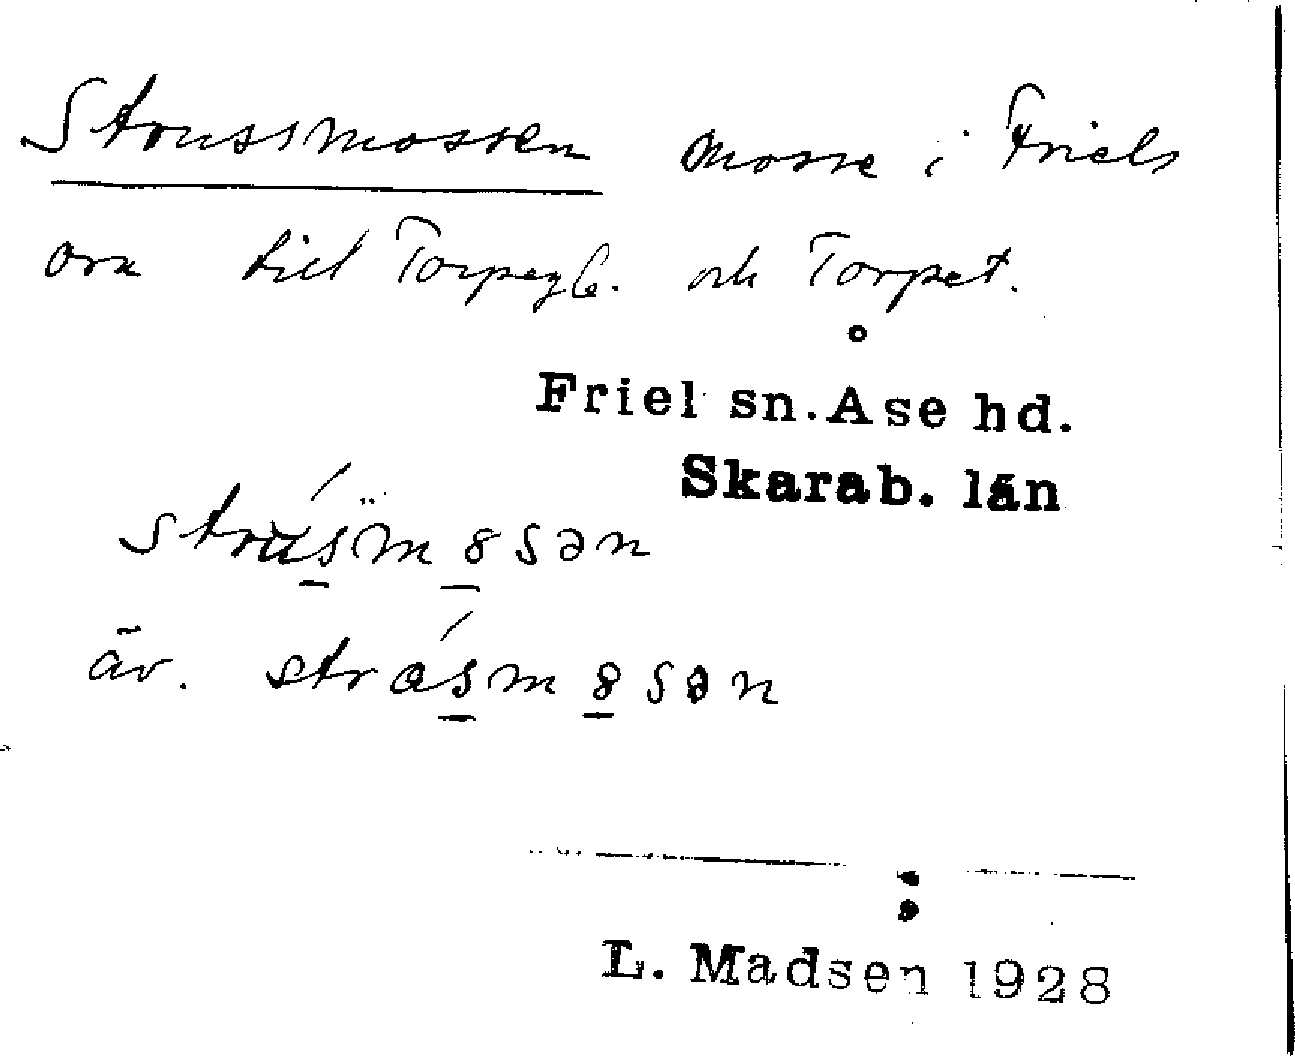 Strussmossen mosse i Friels
ora till Torpegb. och Torpet.
Friel sn. Åse hd.
Skarab. län
strüsm8sən
äv. strasm8sən
L. Madsen 1928